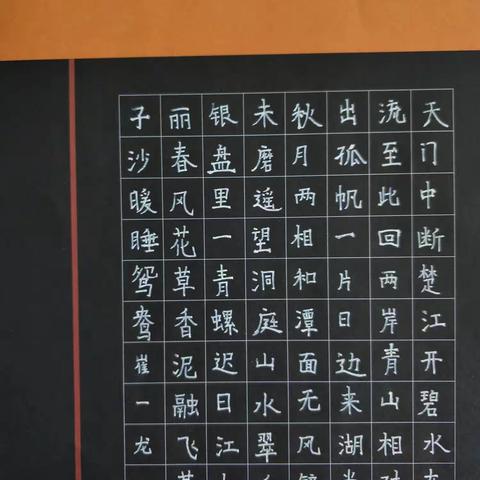 天门中断楚江开碧水东
流至此回两岸青山相对
出孤帆一片日边来湖光
秋月两相和潭面无风镜
未磨遥望洞庭山水翠
银盘里一青螺迟日江山
丽春风花草香泥融飞燕
子沙暖睡鸳鸯崔一龙